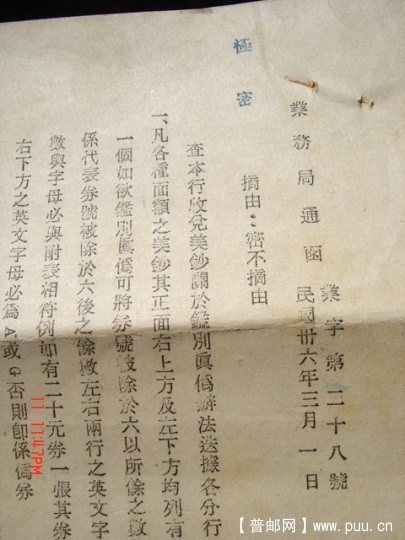 極密
業務局通函 業字第二十八號
民國卅六年三月一日
摘由：密不摘由
查本行收兌美鈔關於鑑別眞僞辦法迭據各分行
一、凡各種面額之美鈔其正面右上方及左下方均列有
一個如欲鑑別眞僞可將券號被除於六以所餘之數
係代表券號被除於六後之餘數左右兩行之英文字
數與字母必與附表相符例如有二十元券一張其券
右下方之英文字母必爲A或G否則卽係僞券
11 11:47PM
【普邮网】www.puu.cn